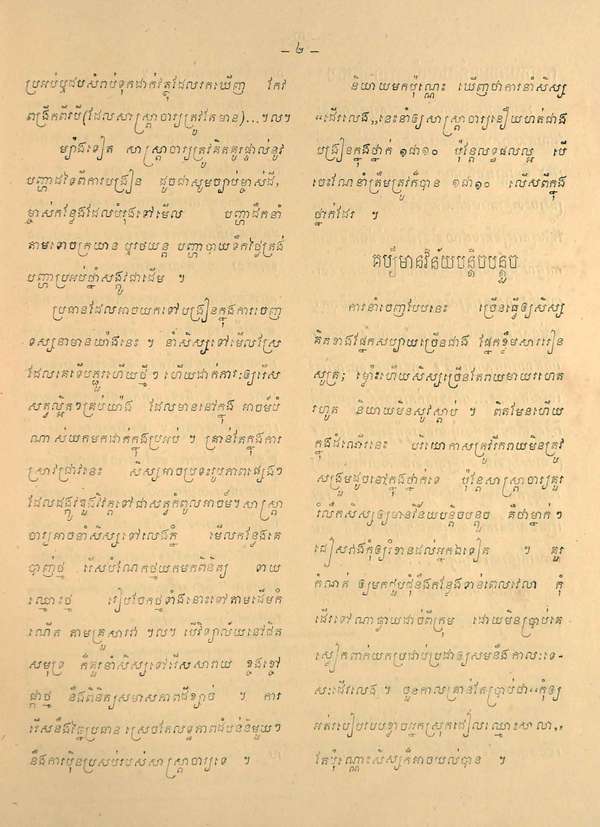 – ២ –
ប្រអប់ឬថបសំរាប់ទុកដាក់វត្ថុដែលរកឃើញ កែវ
ពង្រីកពីរបី(ដែលសាស្ត្រាចារ្យត្រូវតែមាន)...។ល។
ម្យ៉ាងទៀត សាស្ត្រាចារ្យត្រូវគិតគូរផ្ទាល់នូវ
បញ្ហាដទៃពីការបង្រៀន ដូចជាសូមច្បាប់ម្ចាស់ដី,
ម្ចាស់កន្លែងដែលបំរុងទៅមើល បញ្ហាដឹកនាំ
តាមទោចក្រយាន ឬរថយន្ត បញ្ហាបាយទឹកថ្ងៃត្រង់
បញ្ហាប្រអប់ថ្នាំសង្គ្រោះជាដើម ។
ប្រធានដែលអាចយកទៅបង្រៀនក្នុងការចេញ
ទស្សនាមានយ៉ាងនេះ ។ នាំសិស្សទៅមើលស្រែ
ដែលគេទើបភ្ជួរហើយថ្មីៗ ហើយដាក់ការៈឲ្យរើស
សត្វល្អិតៗគ្រប់យ៉ាង ដែលមាននៅក្នុង អាចម៍បំ
ណាស់យកមកដាក់ក្នុងប្រអប់ ។ គ្រាន់តែក្នុងការ
ស្រាវជ្រាវនេះ សិស្សអាចប្រទះរូបភាពផ្សេងៗ
ដែលដង្កូវវិវត្តទៅជាសត្វកំពូលអាចម៍។សាស្ត្រា
ចារ្យអាចនាំសិស្សទៅលេងភ្នំ មើលកន្លែងគេ
បាញ់ថ្ម រើសបំណែកថ្មយកមកពិនិត្យ ទាយ
ឈ្មោះថ្ម រៀបចែកថ្មទាំងនោះទៅតាមដើមកំ
ណើត តាមគ្រួសារវា ។ល។ បើវិទ្យាល័យនៅជិត
សមុទ្រ ក៏គួរនាំសិស្សទៅរើសសារាយ ខ្ចងខ្ចៅ
ផ្កាថ្ម និងពិនិត្យសមាសភាពដីខ្សាច់ ។ ការ
រើសនឹងវិច្ឆ័យប្រធាន ស្រេចតែលទ្ធភាពតំបន់នីមួយៗ
នឹងការប៉ិនប្រសប់របស់សាស្ត្រាចារ្យទេ ។
និយាយមកប៉ុណ្ណេះ ឃើញថាការនាំសិស្ស
«ដើរលេង»នេះនាំឲ្យសាស្ត្រាចារ្យនឿយហត់ជាង
បង្រៀនក្នុងថ្នាក់ ១ជា១០ ប៉ុន្តែលទ្ធផលល្អ បើ
ចេះណែនាំត្រឹមត្រូវក៏បាន ១ជា១០ លើសពីក្នុង
ថ្នាក់ដែរ ។
គប្បីមានវិន័យបន្តិចបន្តួច
ការនាំចេញបែបនេះ ច្រើនធ្វើឲ្យសិស្ស
គិតខាងផ្នែកសប្បាយច្រើនជាង ផ្នែកខ្លឹមសាររៀន
សូត្រ; ម្ល៉ោះហើយសិស្សច្រើនតែរាយមាយរហេត
រហូត និយាយមិនសូវស្ដាប់ ។ ពិតមែនហើយ
ក្នុងដំណើរនេះ បរិយាកាសត្រូវរីករាយមិនត្រូវ
សង្រួមដូចនៅក្នុងថ្នាក់ទេ ប៉ុន្តែសាស្ត្រាចារ្យគួរ
រំលឹកសិស្សឲ្យមានវិន័យបន្តិចបន្តួច គឺថាម្នាក់ៗ
ជៀសវាងកុំឲ្យរំខានដល់អ្នកឯទៀត ។ គួរ
កំណត់ ឲ្យមកជួបជុំនឹងកន្លែងទាន់ពេលវេលា កុំ
ដើរទៅណាឆ្ងាយដាច់ពីក្រុម ដោយមិនប្រាប់គេ
ស្លៀកពាក់យកប្រដាប់ប្រដាឲ្យសមនឹងកាលៈទេ-
សៈដើរលេង ។ ជួនកាលគ្រាន់តែប្រាប់ថា «កុំឲ្យ
អត់របៀបរបបខ្លាចអ្នកស្រុកជៀលឈ្មោះសាលា,»
តែប៉ុណ្ណោះសិស្សក៏អាចយល់បាន ។